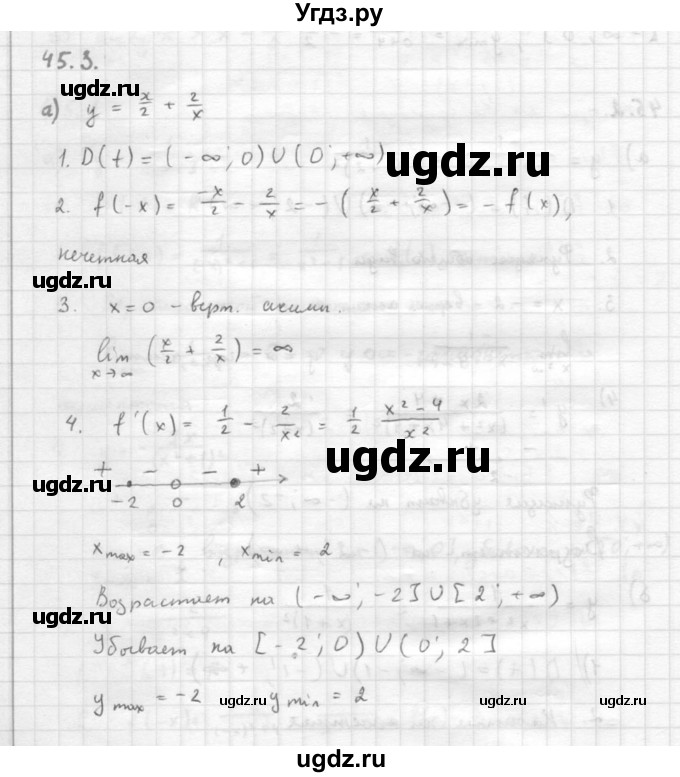 Угдз.ру
45.3.
а) y = x/2 + 2/x
1. D(f) = (-∞; 0) ∪ (0; +∞)
ugdz.ru
2. f(-x) = -x/2 - 2/x = -(x/2 + 2/x) = -f(x),
нечетная
ugdz.ru
3. x=0 - верт. асимп.
lim x→∞ (x/2 + 2/x) = ∞
4. f'(x) = 1/2 - 2/x² = 1/2 x²-4/x²
ugdz.ru
+ - - +
ugdz.ru
-2 0 2
x max = -2, x min = 2
Возрастает на (-∞; -2] ∪ [2; +∞)
ugdz.ru
Убывает на [-2; 0) ∪ (0; 2]
y max = -2 y min = 2
ugdz.ru ugdz.ru ugdz.ru
ugdz.ru
ugdz.ru